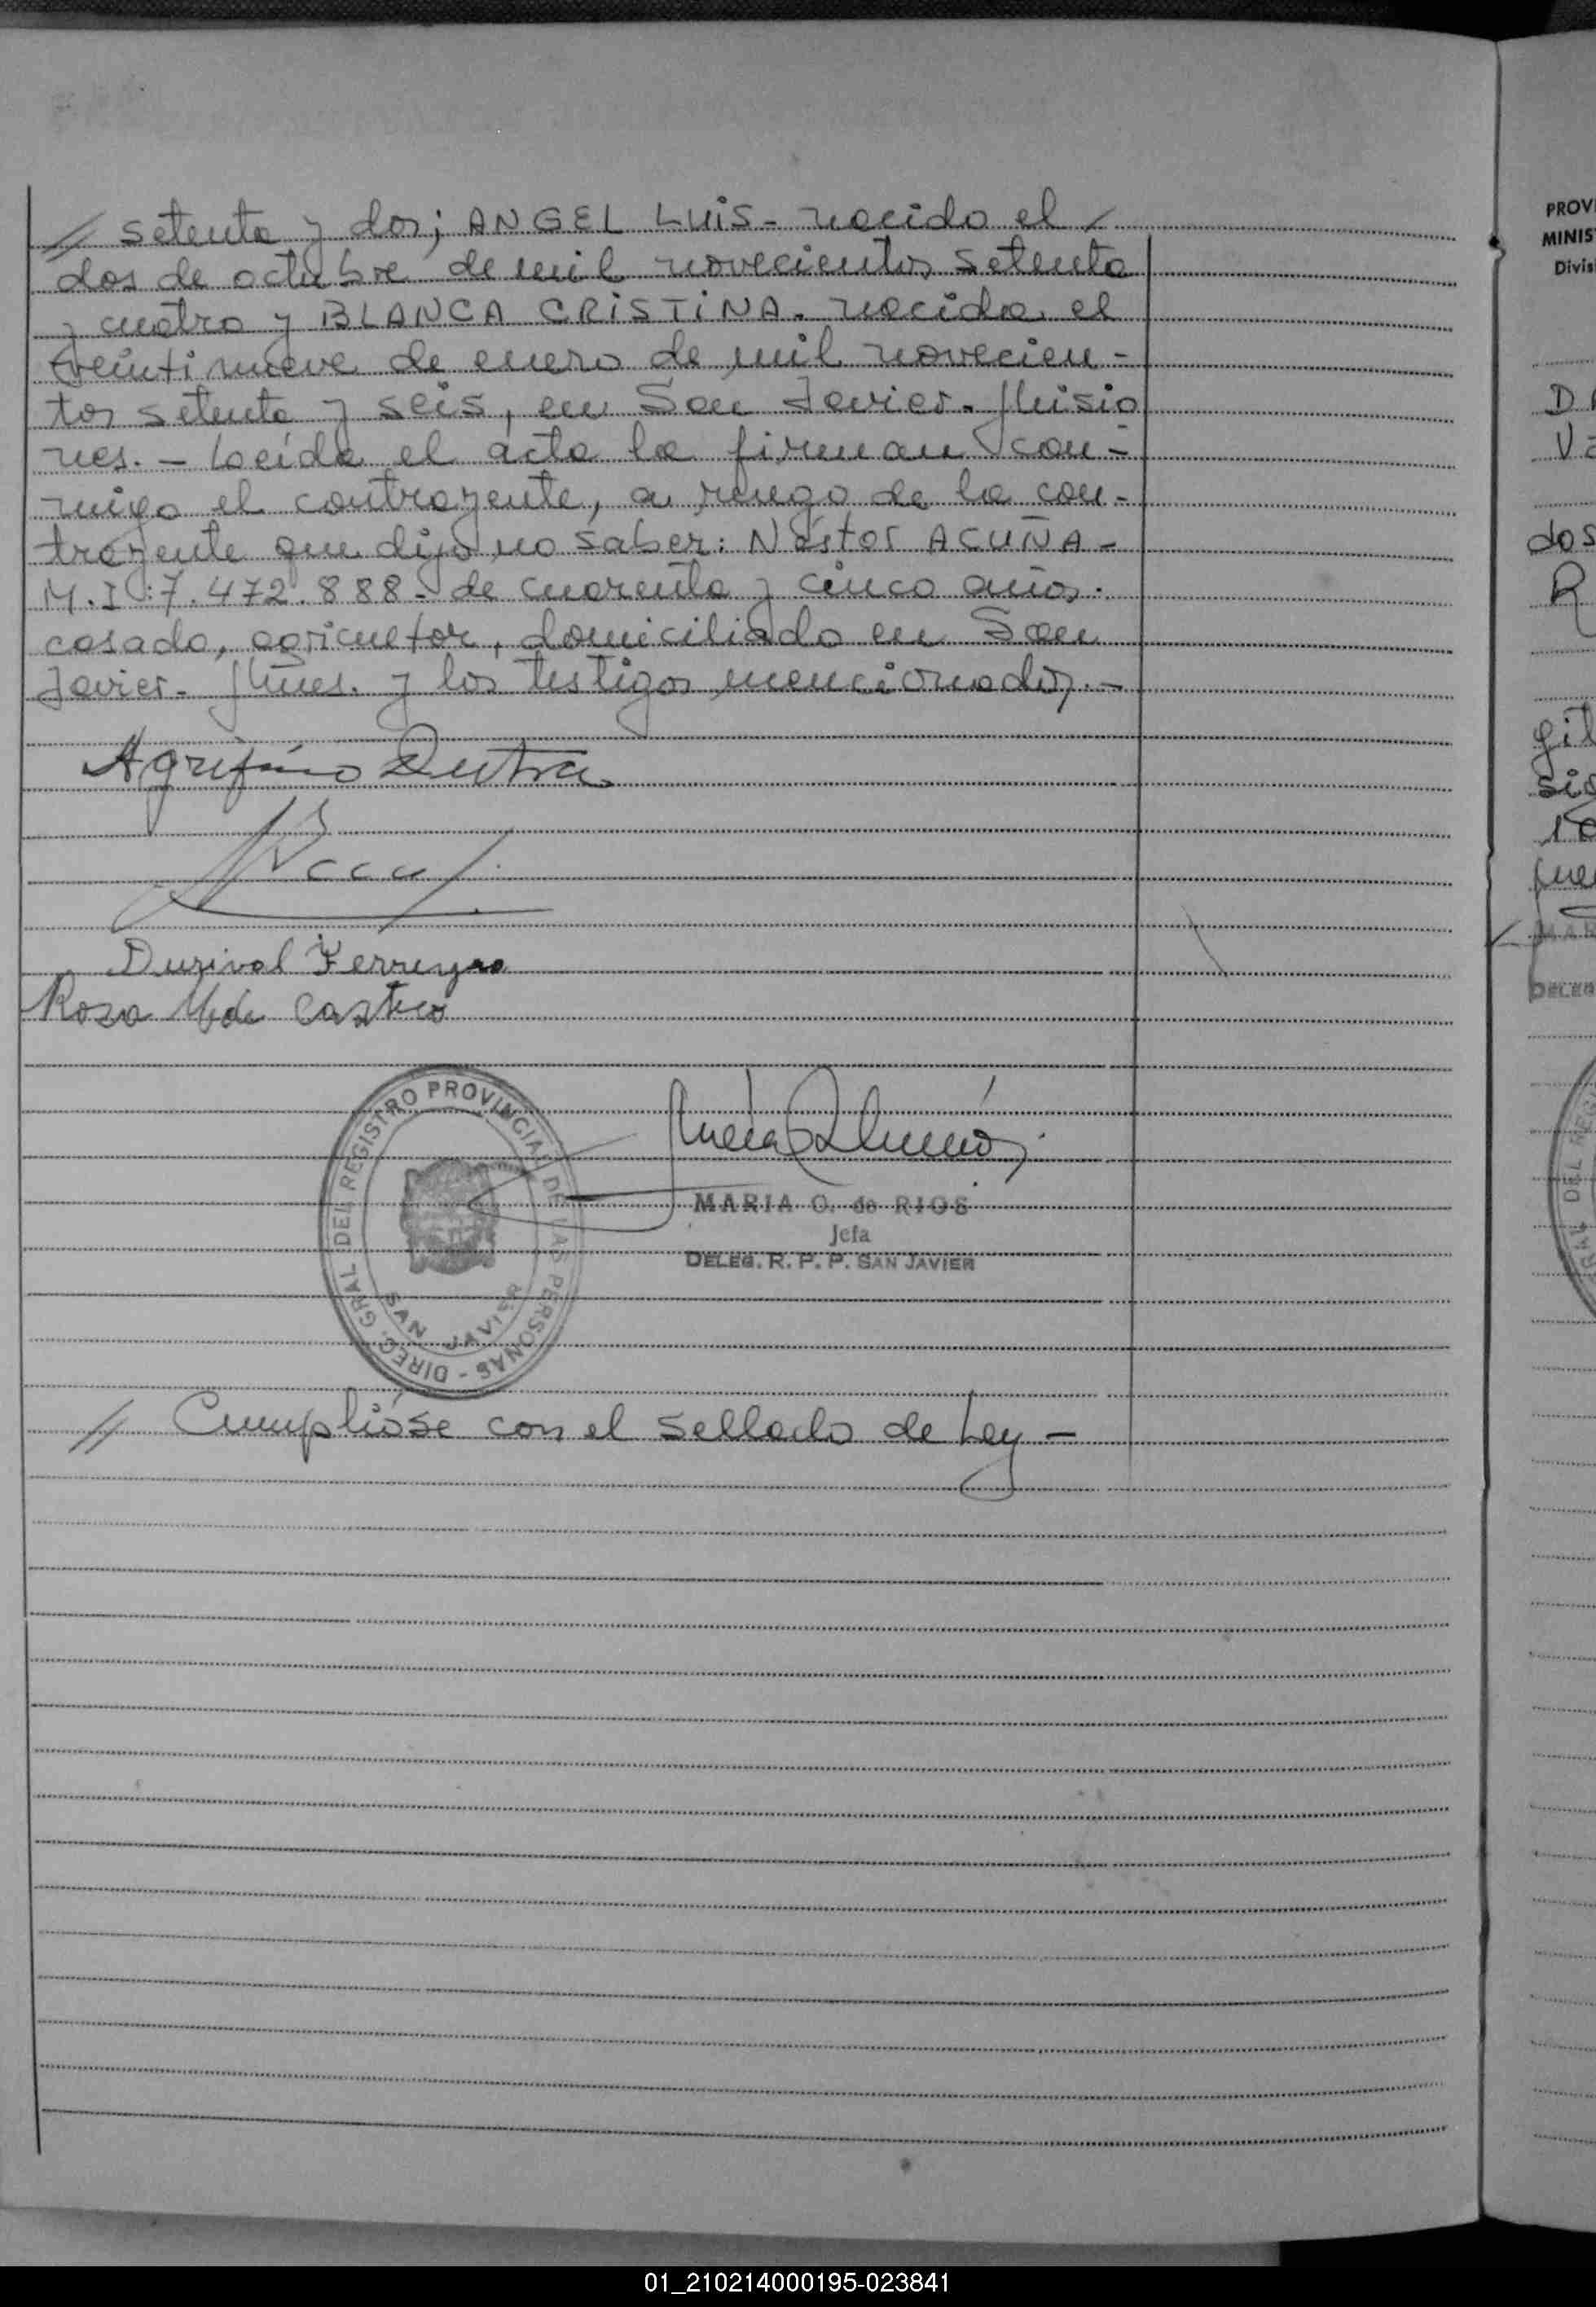 // setenta y dos; ANGEL LUIS- nacido el /
dos de octubre de mil novecientos setenta
y cuatro y BLANCA CRISTINA. nacida el
veintinueve de enero de mil novecien-
tos setenta y seis, en San Javier. Misio
nes. - Leída el acta la firman con-
migo el contrayente, a ruego de la con-
trayente que dijo no saber: Néstor ACUÑA-
M.I:7.472.888- de cuarenta y cinco años.
casado, agricultor, domiciliado en San
Javier- Mnes. y los testigos mencionados.-
Agrifino Dutra
Durival Ferreyra
Rosa M de Castro
DIREC. GRAL. DEL REGISTRO PROVINCIAL DE LAS PERSONAS -
SAN JAVIER
MARIA O. de RIOS
Jefa
DELEG. R. P. P. SAN JAVIER
// Cumplióse con el sellado de Ley -
PROV
MINIS
Divis
dos
DELEG
DEL
01_210214000195-023841